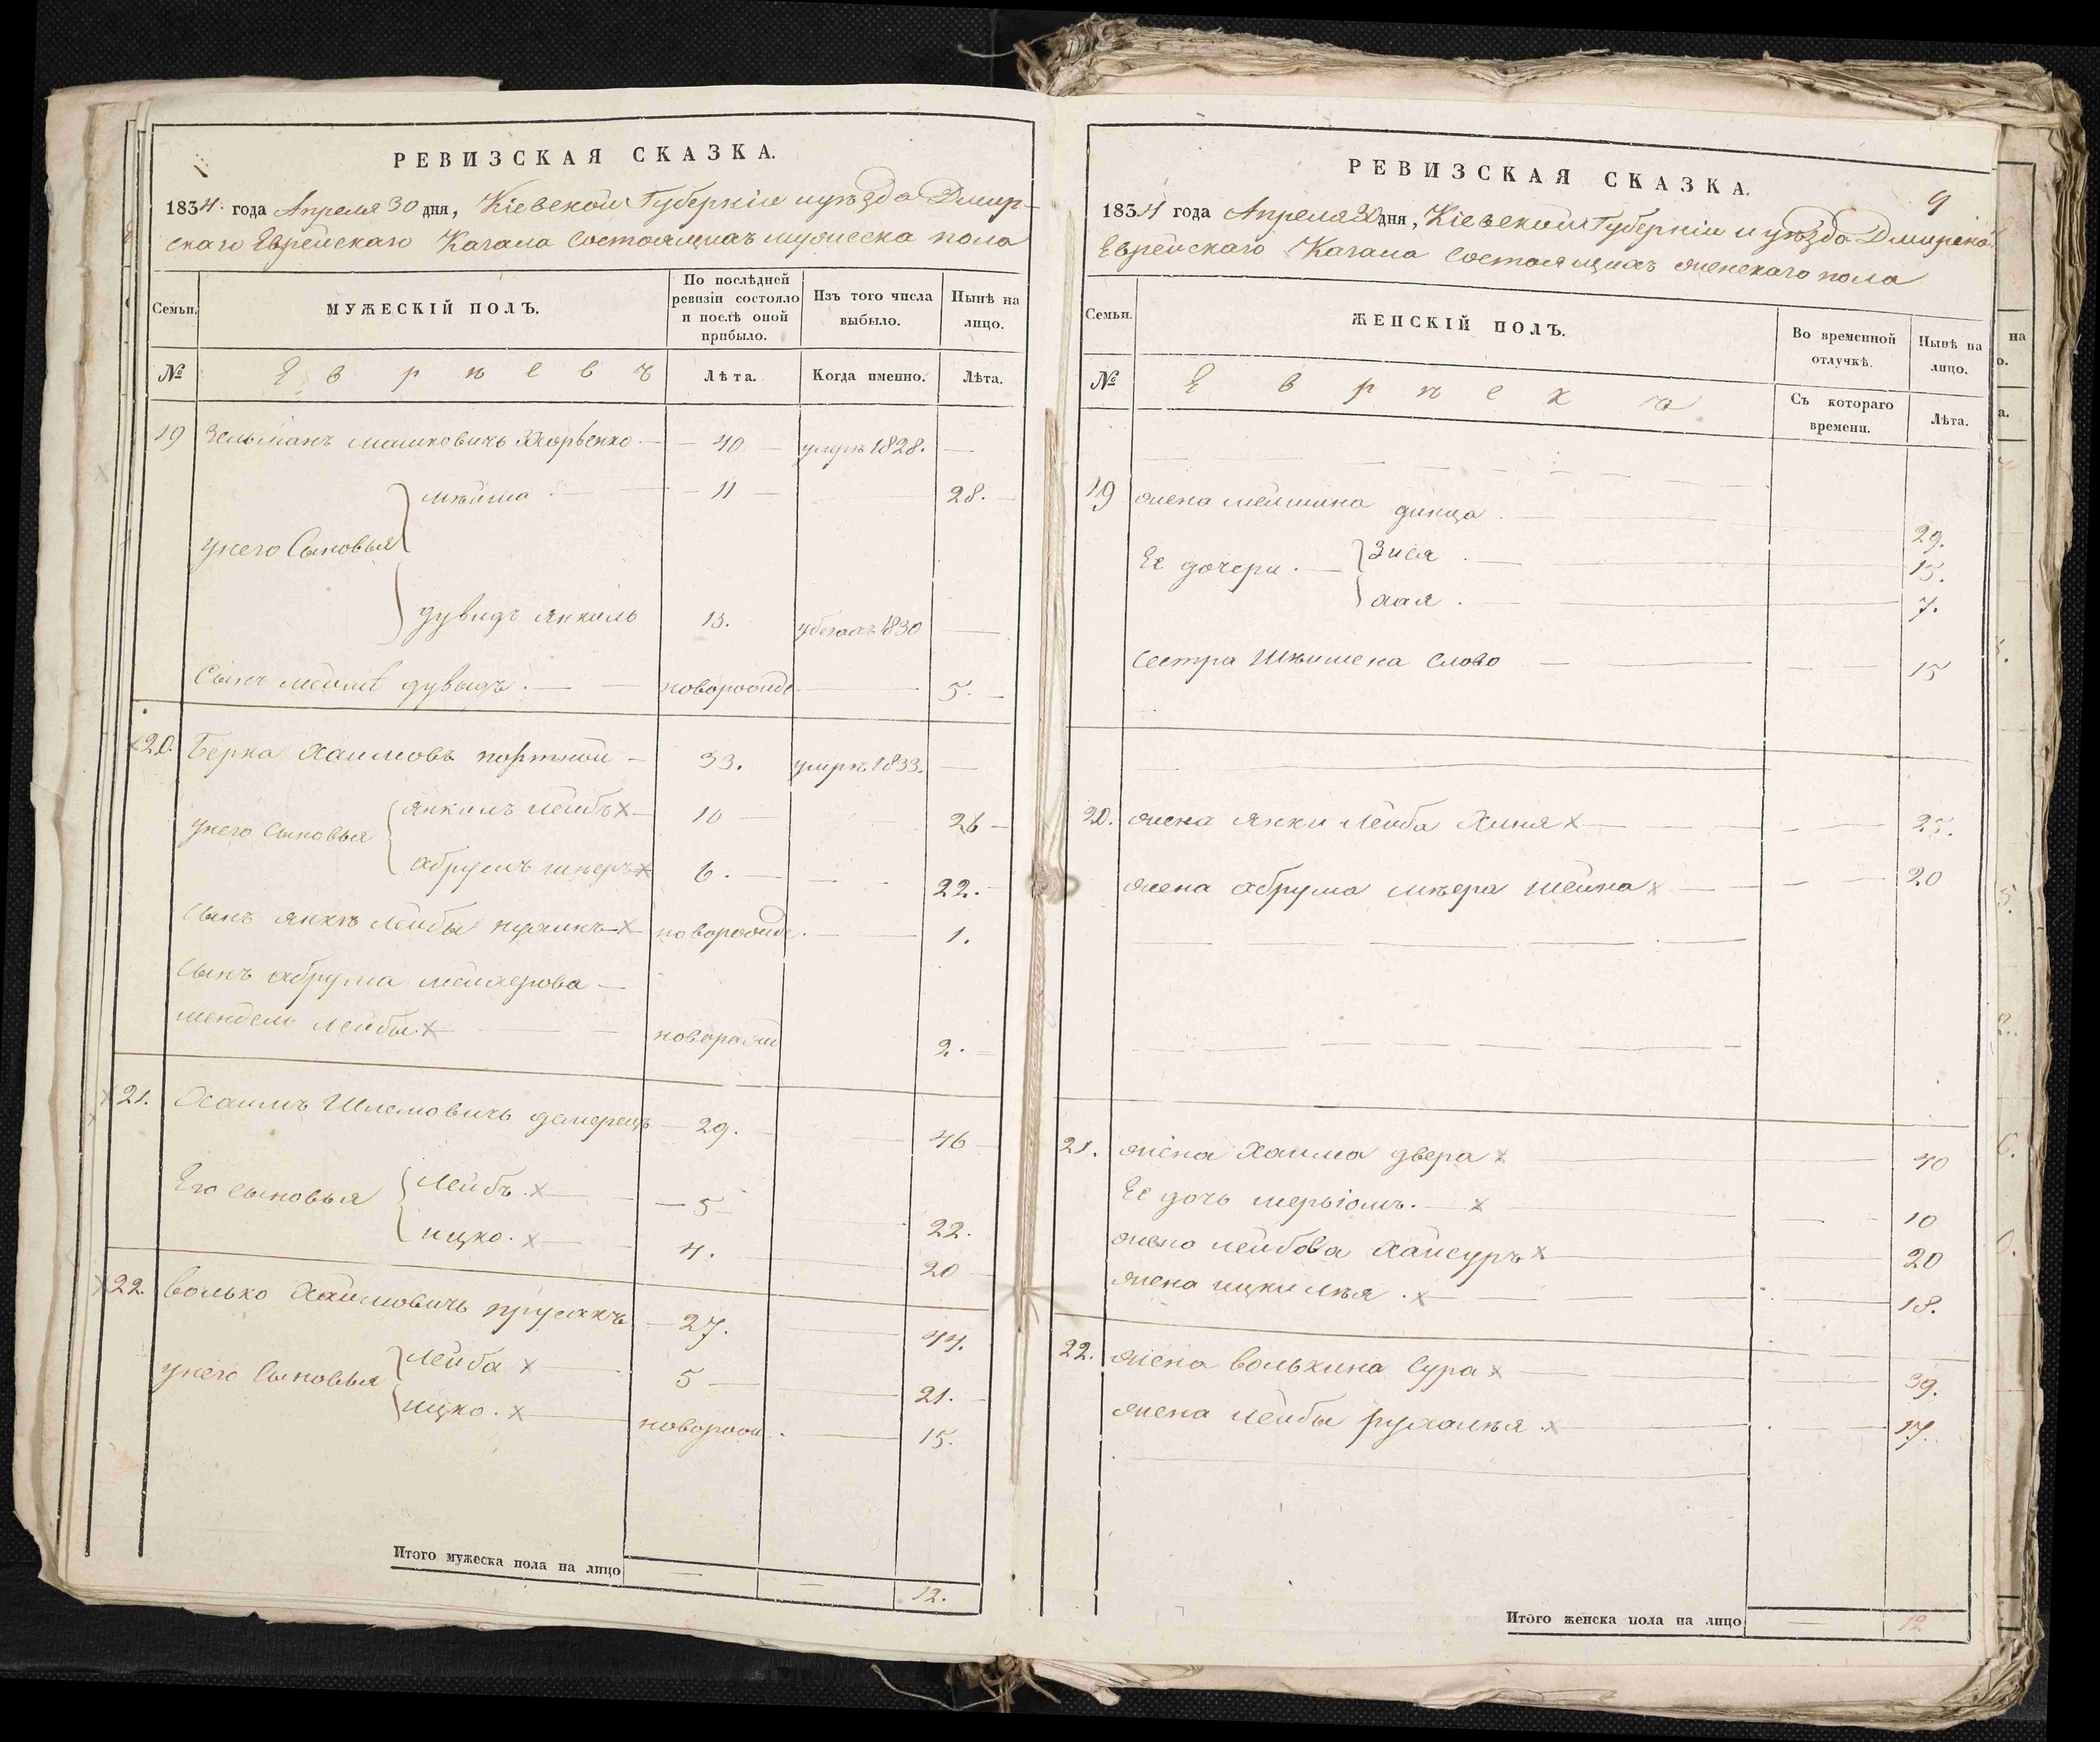 РЕВИЗСКАЯ СКАЗКА.
1834. года Апреля 30 дня, Кіевской Губерніи и уѣзда Дмир-
скаго Еврейскаго Кагала состоящихъ мужеска пола
Семьи.
МУЖЕСКІЙ ПОЛЪ.
По послѣдней ревизіи состояло и послѣ оной прибыло.
Изъ того числа выбыло.
Нынѣ на лицо.
№
Евръевъ
Лѣта.
Когда именно.
Лѣта.
19 Зельманъ Машковичъ — 40 — умръ 1828. —
мѣйша — 11 — 28.
у него Сыновья
дувидъ янкиль 13. убежалъ 1830 —
Сынъ дувидъ. — новорожде — 5.
20. Берка Хаимовъ портной — 33. умръ 1833. —
янкилъ лейбъ х 10 — 26
у него сыновья
абрумъ х 6. — 22.
сынъ янкъ лейбы х новорожде. — 1.
сынъ абрума —
мендель лейбы х — новорожд 2.
21. Хаимъ Шлемовичъ — 29. 46
Его сыновья
Лейбъ. х — 5 22.
ицко. х 4. 20
22. Волько Хаимовичъ прусакъ — 27. 44.
Лейба х 5 — 21.
у него Сыновья
ицко. х новорож. 15.
Итого мужеска пола на лицо — — 12.
РЕВИЗСКАЯ СКАЗКА.
9
1834 года Апреля 30 дня, Кіевской Губерніи и уѣзда Дмирска
Еврейскаго Кагала состоящихъ женскаго пола
Семьи.
ЖЕНСКІЙ ПОЛЪ.
Во временной отлучкѣ.
Нынѣ на лицо.
№
Евръеха
Съ котораго времени.
Лѣта.
19 жена мейшина динца. 29.
Ее дочери. — Зися. 15.
хая. 7.
сестра 15
20. жена янки лейба Хиня х 25.
жена абрума мѣера шейна х 20
21. жена Хаима двера х 40
Ее дочь мерьіомъ. — х 10
жена лейбова хайсуръ х 20
жена ицки лѣя. х 18.
22. жена волькина Сура х 39.
жена лейбы рухалѣя. х 17.
Итого женска пола на лицо — 12